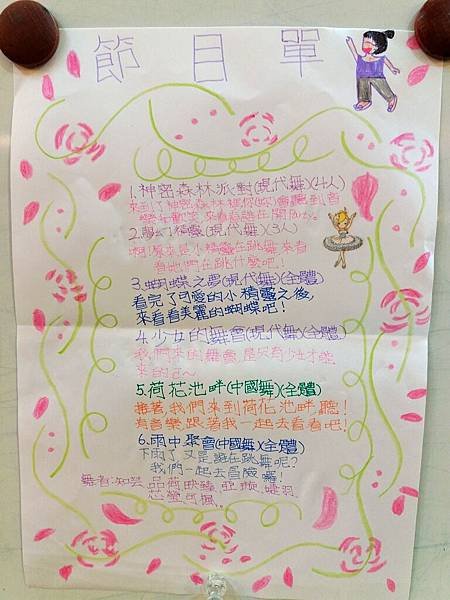 節目單
1.神密森林派對(現代舞)(4人)
來到了神密森林裡你(妳)會聽到音
樂和歡笑,來看看誰在開Party。
2.夢幻精靈(現代舞)(3人)
啊!原來是小精靈在跳舞來看
看她們在跳什麼吧!
3.蝴蝶之夢(現代舞)(全體)
看完了可愛的小精靈之後,
來看看美麗的蝴蝶吧!
4.少女的舞會(現代舞)(全體)
我們來的舞會是只有少女才能
來的
5.荷花池畔(中國舞)(全體)
接著,我們來到荷花池畔,聽!
有音樂,跟著我一起去看看吧!
6.雨中聚會(中國舞)(全體)
下雨了又是誰在跳舞呢?
我們一起去冒險囉!
舞者:知芸、品荷、